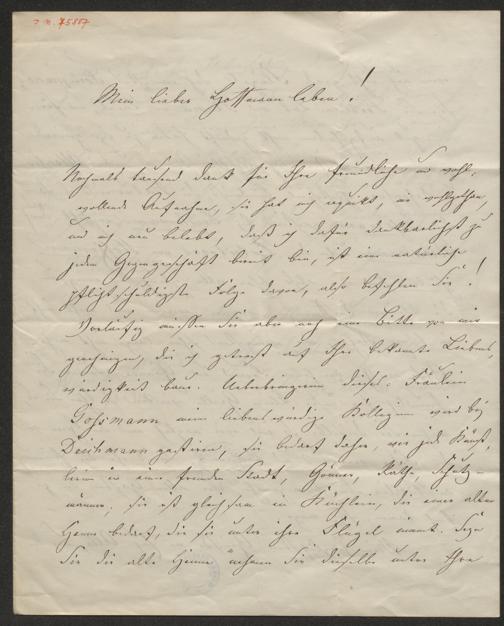 J. N. 75887
Mein lieber Hoffmann leben!
Nochmals tausend Dank für Ihre freundliche und wohl-
wollende Aufnahme, sie hat mich erquikt, mir wohlgethan,
und ich neu belebt, daß ich dafür dankbarlichst zu
jedem Gegengeschäft bereit bin, ist eine natürliche
pflichtschuldigste Folge davon, also befehlen Sie!
Vorläufig müssen Sie aber noch eine Bitte von mir
genehmigen, die ich getrost auf Ihre bekannte Liebens-
würdigkeit baue. Ueberbringerin dieses, Fräulein
Gossmann meine liebenswürdige Kollegin wird bei
Deichmann gastiren, sie bedarf daher, wie jede Künst-
lerin in einer fremden Stadt, Gönner, Räthe, Schutz-
männer. Sie ist gleichsam ein Küchlein, die einer alten
Henne bedarf, die sie unter ihre Flügel nimt. Seyn
Sie die alte Henne nehmen Sie dieselbe unter Ihre